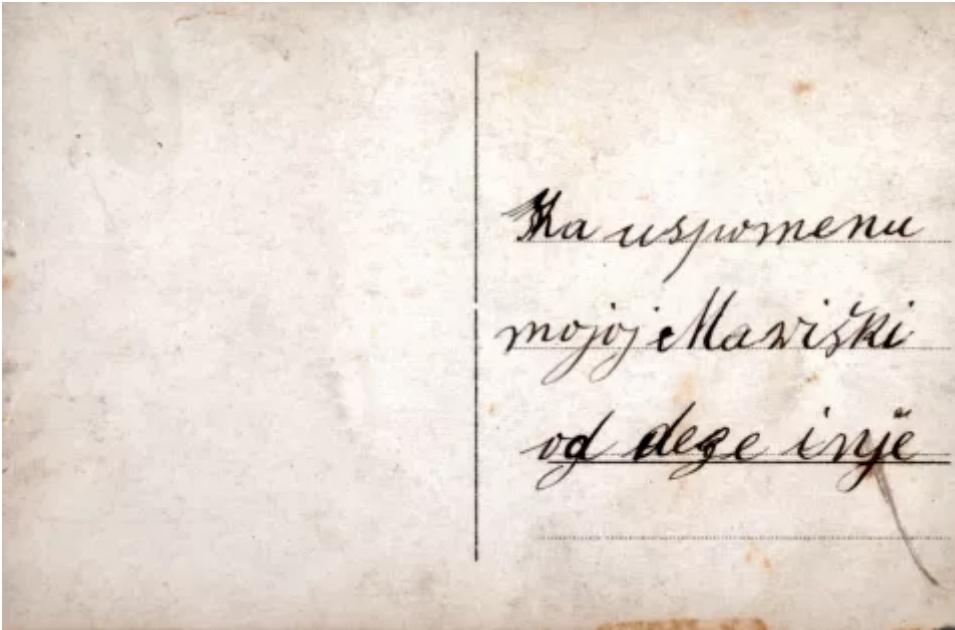 Za uspomenu
mojoj Mariški
od deze inje